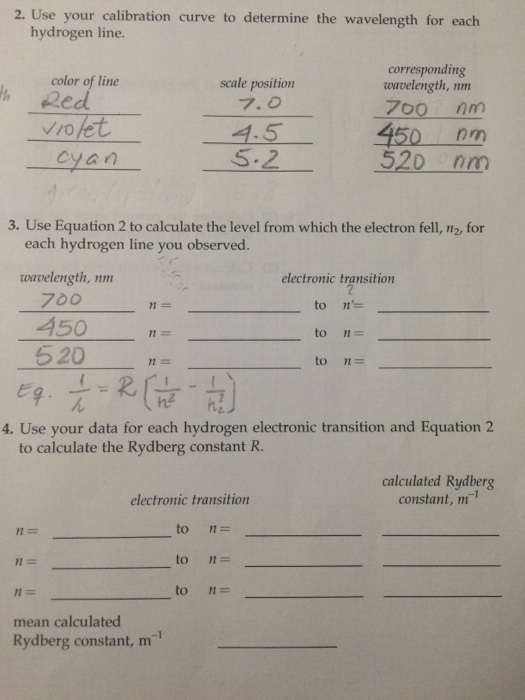 2. Use your calibration curve to determine the wavelength for each
hydrogen line.
color of line scale position corresponding wavelength, nm
th Red 7.0 700 nm
violet 4.5 450 nm
cyan 5.2 520 nm
3. Use Equation 2 to calculate the level from which the electron fell, n₂, for
each hydrogen line you observed.
wavelength, nm electronic transition
?
700 n = to n =
450 n = to n =
520 n = to n =
Eq. 1/λ = R (1/n² - 1/n₂²)
4. Use your data for each hydrogen electronic transition and Equation 2
to calculate the Rydberg constant R.
electronic transition calculated Rydberg constant, m⁻¹
n = to n =
n = to n =
n = to n =
mean calculated
Rydberg constant, m⁻¹